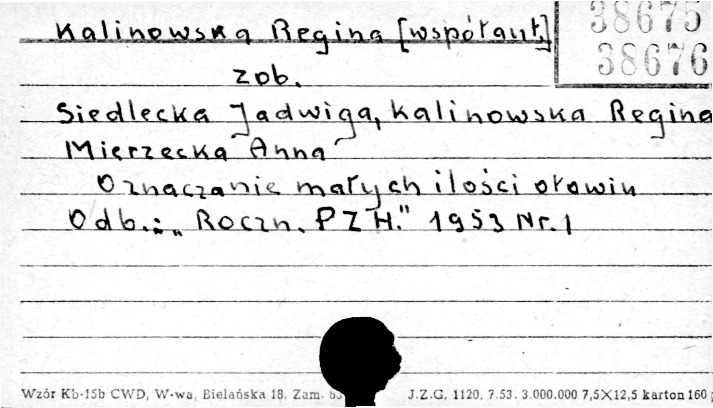 Kalinowska Regina [współaut.]
38675
38676
zob.
Siedlecka Jadwiga, Kalinowska Regina
Mierzecka Anna
Oznaczanie małych ilości ołowiu
Odb.: „Roczn. PZH." 1953 Nr. 1
Wzór Kb-15b CWD, W-wa, Bielańska 18. Zam. J.Z.G. 1120. 7.53. 3.000.000 7,5×12,5 karton 160